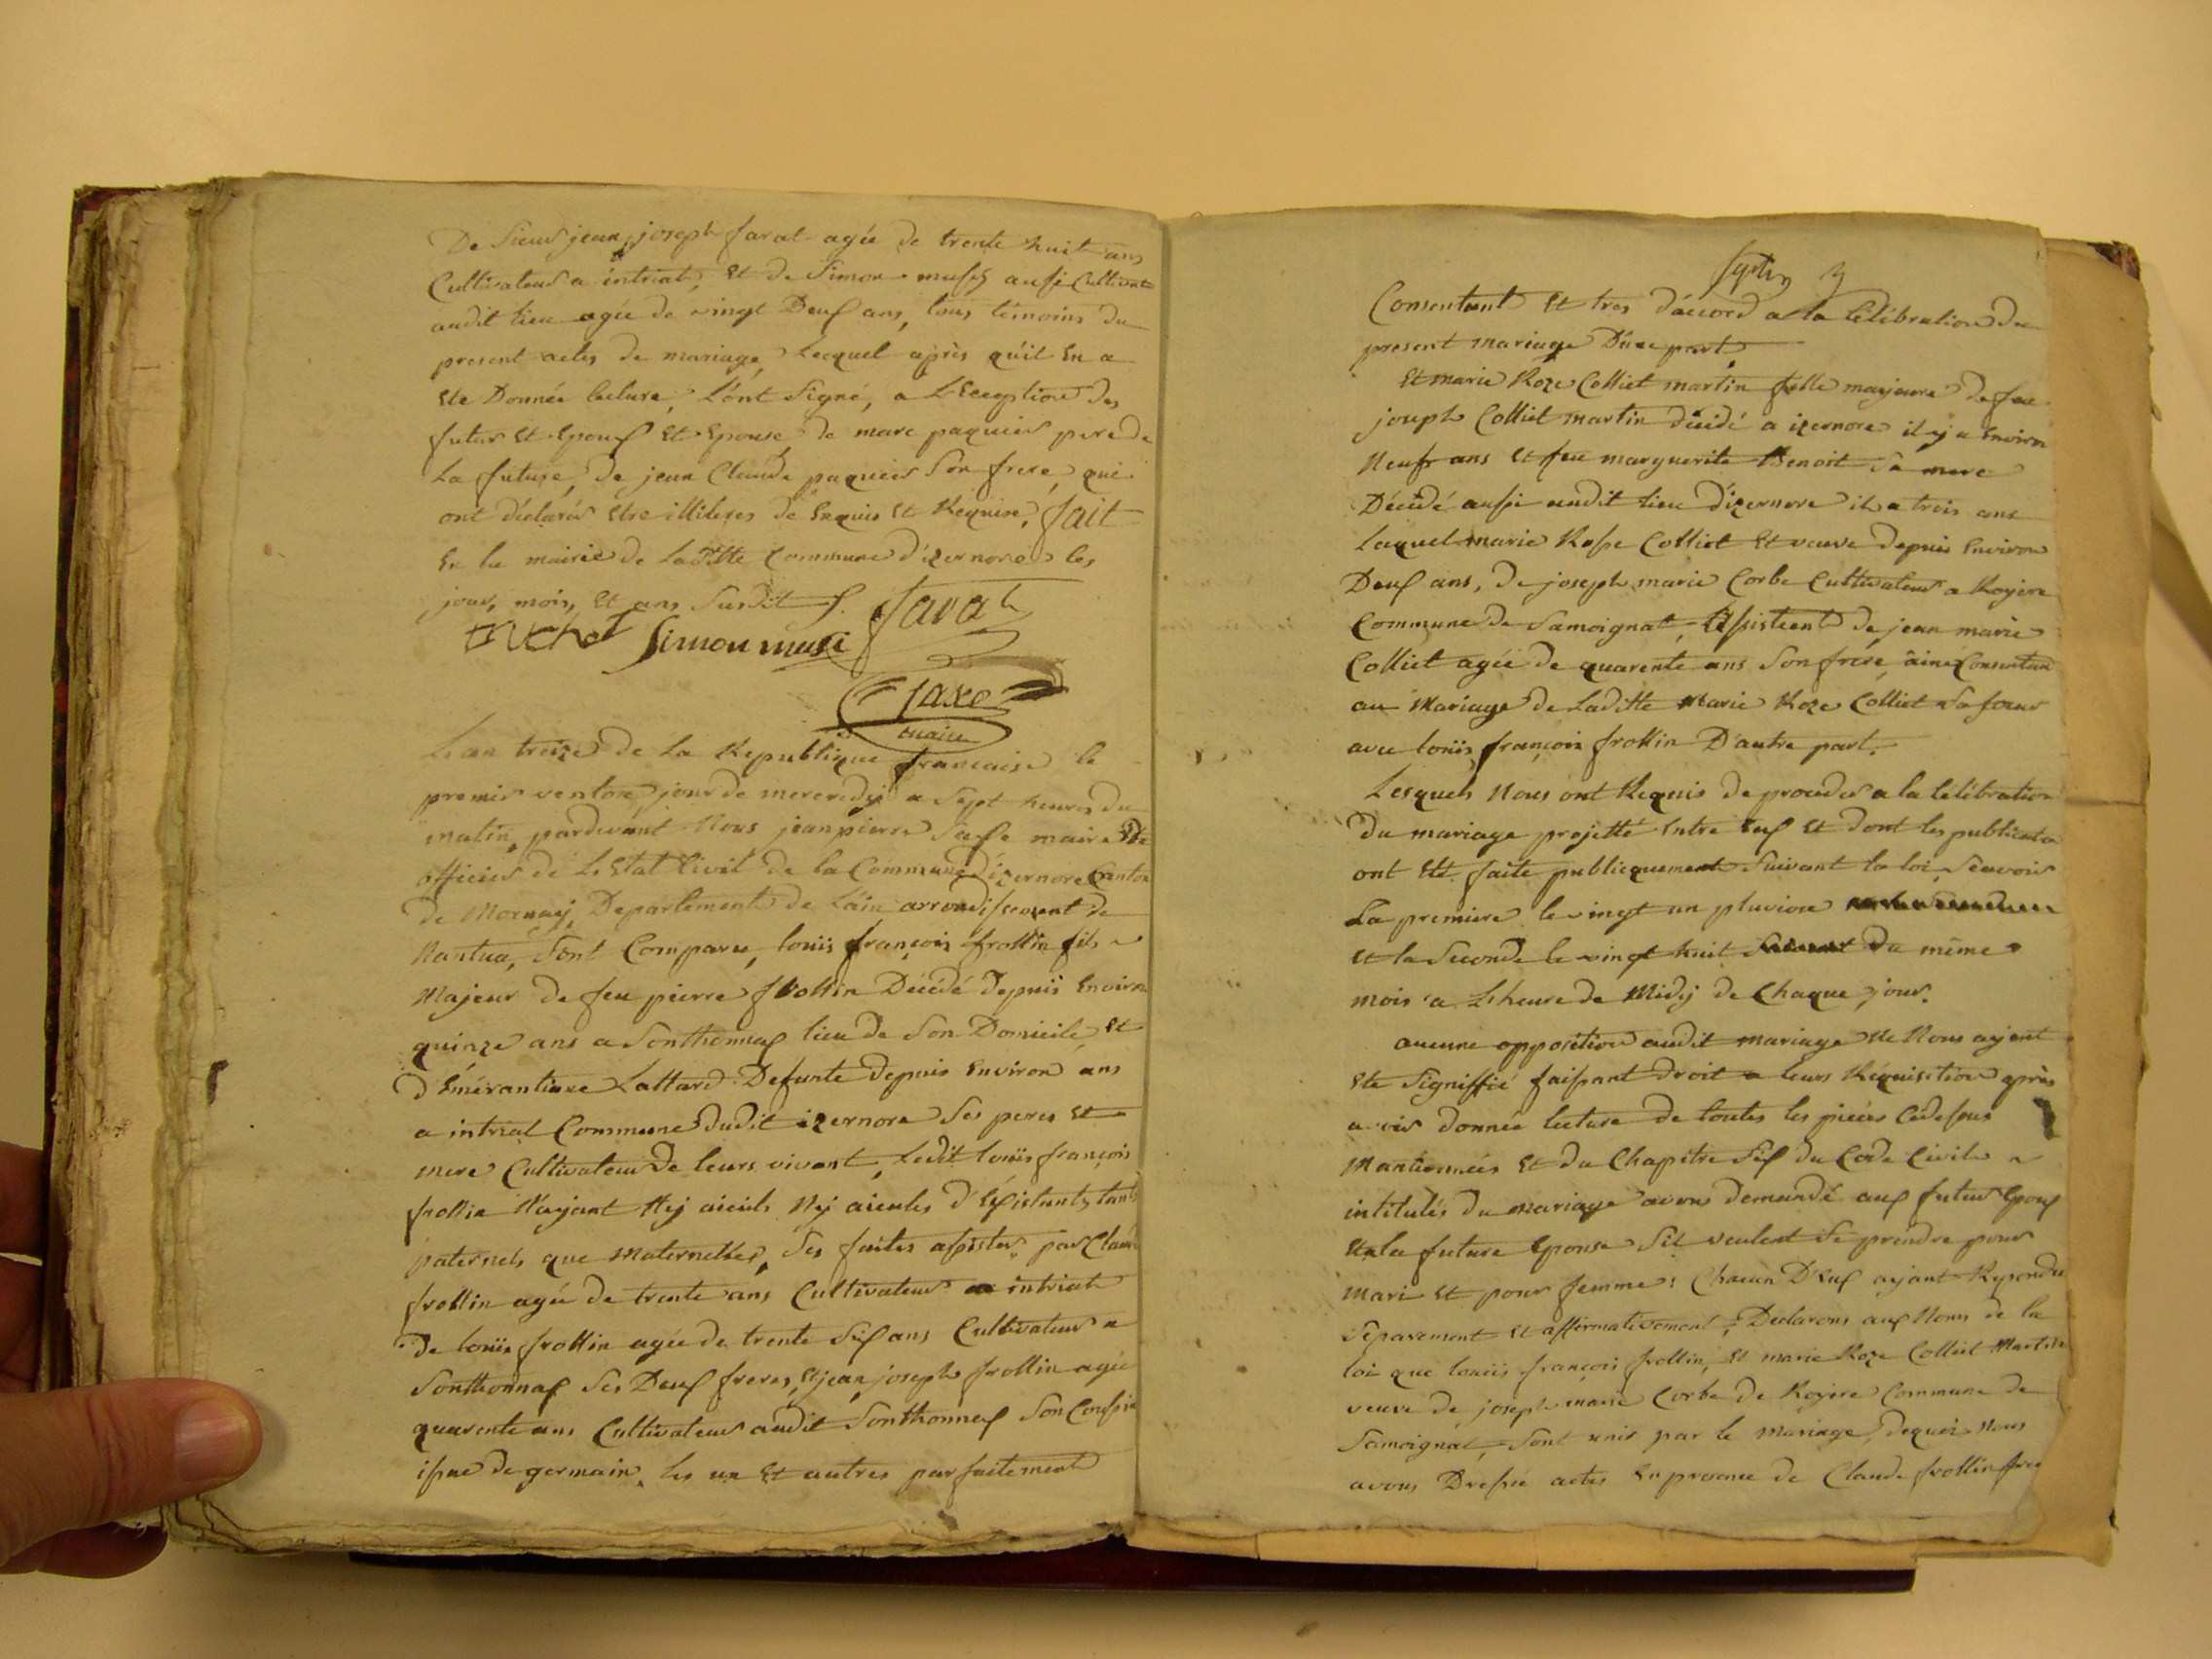 De Sieur jean joseph favat agée de trente huit ans
Cultivateur a intriat, et de Simon musy aussi Cultivat
audit lieu agée de vingt Deux ans, tous témoins du
present actes de mariage, Lecquel après qu'il En a
Ete Donnée lecture, L'ont Signé, a L'Exception des
futur Et Epoux Et Epouse de marc paquier pere de
La future, de jean Claude paquier Son frere, que
ont déclarés Etre illiteres de Enquis Et Requise, fait
En la mairie de Laditte Commune d'izernore les
jour, mois, Et ans Susdit
favat
truchet Simon musi
Saxe
maire
L'an treize de La Republique francaise le
premier ventose jour de mercredy a Sept heures du
matin, pardevant Nous jean pierre Saxe maire
officier de L'Etat Civil de la Commune d'izernore Canton
de Mornay, Departement de L'ain arrondissement de
Nantua, Sont Comparu, louis françois frollin fils
Majeur de feu pierre frollin Décédé Depuis Environ
quinze ans a Sonthonnax lieu de Son Domicile, et
d'Emérantiane Lattard Defunte depuis Environ ans
a intriat Commune dudit izernore Ses peres Et
mere Cultivateur De leurs vivant, Ledit louis françois
frollin N'ayant Ny aieuls Ny aieules d'Existants tants
paternels que Maternelles, Ses faites assister par Claude
frollin agée de trente ans Cultivateur a intriat
de louis frollin agée de trente Six ans Cultivateur a
Sonthonnax Ses Deux freres, Et jean joseph frollin agée
quarente ans Cultivateur audit Sonthonnax Son Consin
issue de germain. les un Et autres parfaitement
Consentant Et tres d'accord a la Célébration du
present mariage D'une part.
Et marie Roze Colliet martin fille majeure de feu
joseph Colliet martin décidé a izernore il y a Environ
Neufr ans et feu marguerite Benoit Sa mere
Décédé aussi audit lieu d'izernore il a trois ans
Laquel marie Rosse Colliet Et veuve depuis Environ
Deux ans, de joseph marie Corbe Cultivateur a Royere
Commune de Samoignat, Assisteent de jean marie
Colliet agée de quarente ans Son frere ainé Consentan
au Mariage de Laditte Marie Roze Colliet Sa soeur
avec louis françois frollin D'autre part.
Lesquels Nous ont Requis de proceder a la Célébration
du mariage projetté Entre Eux Et dont les publication
ont Eté faite publicquement Suivant la loi, Scavoir
La premiere le vingt un pluviose
et la Seconde le vingt huit du même
mois a L'heure de Midy de Chaque jour.
aucune opposition audit mariage Ne Nous ayent
Ete Signiffié faissant droit a leurs Réquisition après
avoir donnée lecture de toutes les pieces Cidessus
Mantionnées Et du Chapitre Six du Code Civile
intitulés du mariage avons demandé aux futur Epoux
Et a la future Epouse Sil veulent Se prendre pour
Mari Et pour femme: Chacun D'Eux ayant Repondu
Séparement Et affirmativement; Declarons aux Noms de la
loi que louis françois frollin, Et marie Roze Colliet Martin
veuve de joseph marie Corbe de Royere Commune de
Samoignat, Sont unis par le Mariage, dequoi Nous
avons Dressée actes En presence de Claude frollin frere